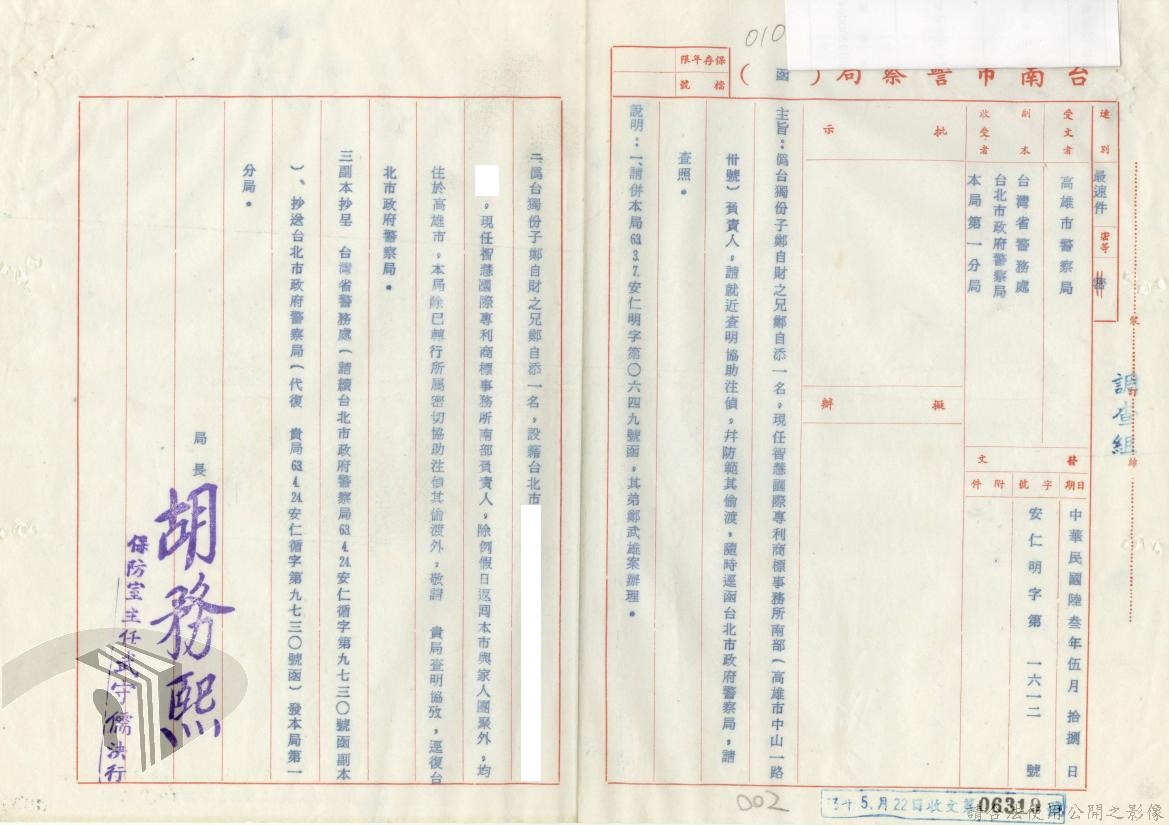 010
台南市警察局（函）
保存年限
檔號
速別
最速件
密等
受文者
高雄市警察局
副本
收受者
台灣省警務處
台北市政府警察局
本局第一分局
批示
擬辦
發文
日期
中華民國陸叁年伍月拾捌日
字號
安仁明字第一六一二號
附件
主旨：偽台獨份子鄭自財之兄鄭自添一名，現任智慧國際專利商標事務所南部（高雄市中山一路
卅號）負責人，請就近查明協助注偵，并防範其偷渡，隨時逕函台北市政府警察局，請
查照。
說明：一、請併本局63.3.7.安仁明字第〇六四九號函，其弟鄭武雄案辦理。
二、偽台獨份子鄭自財之兄鄭自添一名，設籍台北市
，現任智慧國際專利商標事務所南部負責人，除例假日返回本市與家人團聚外，均
住於高雄市，本局除已轉行所屬密切協助注偵其偷渡外，敬請　貴局查明協攷，逕復台
北市政府警察局。
三副本抄呈　台灣省警務處（請續台北市政府警察局63.4.24.安仁循字第九七三〇號函副本
）、抄送台北市政府警察局（代復　貴局63.4.24.安仁循字第九七三〇號函）發本局第一
分局。
局長
胡務熙
保防室主任武守儒決行
裝
訂
線
調查組
002
5.月22日收文第06319號
請合法使用公開之影像